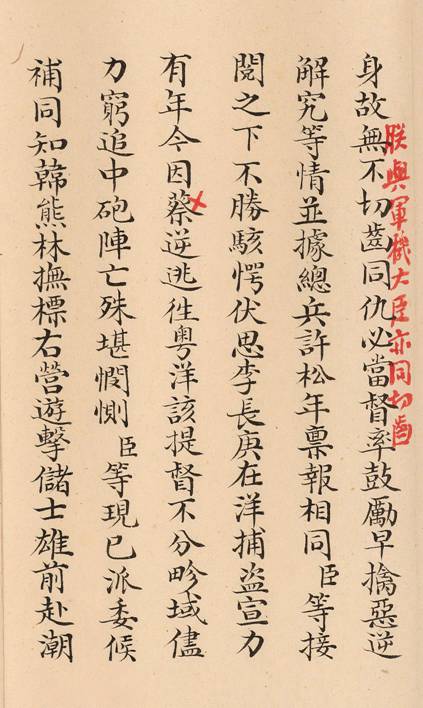 身故無不切齒同仇必當督率鼓勵早擒惡逆
朕與軍機大臣亦同切齒
解究等情並據總兵許松年稟報相同臣等接
閱之下不勝駭愕伏思李長庚在洋捕盜宣力
有年今因蔡逆逃往粵洋該提督不分畛域儘
力窮追中砲陣亡殊堪憫惻臣等現已派委候
補同知韓熊林撫標右營遊擊儲士雄前赴潮